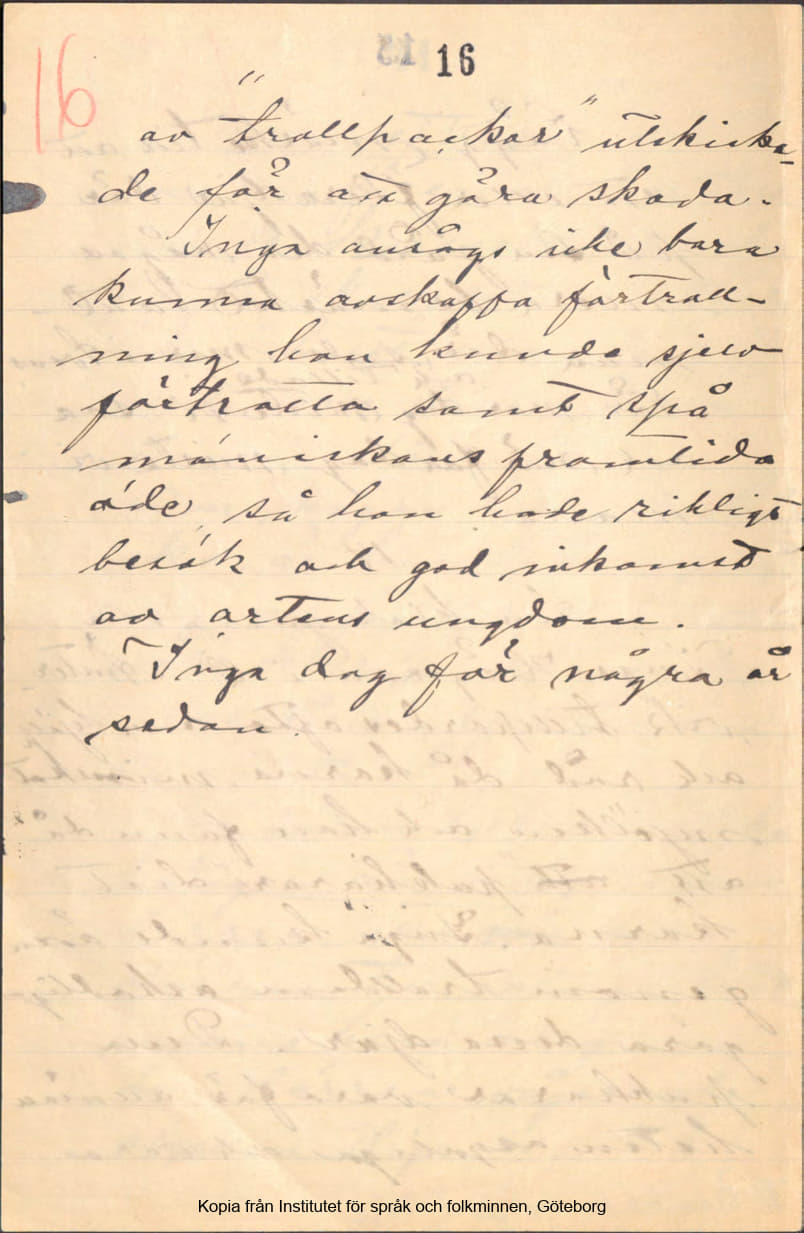 16
16
av "trollpackor" utskicka-
de för att göra skada.
Inga ansågs icke bara
kunna avskaffa förtroll-
ning hon kunde sjelv
förtrolla samt spå
mäniskans framtida
öde, så hon hade rikligt
besök och god inkomst
av ortens ungdom.
Inga dog för några år
sedan.
Kopia från Institutet för språk och folkminnen, Göteborg